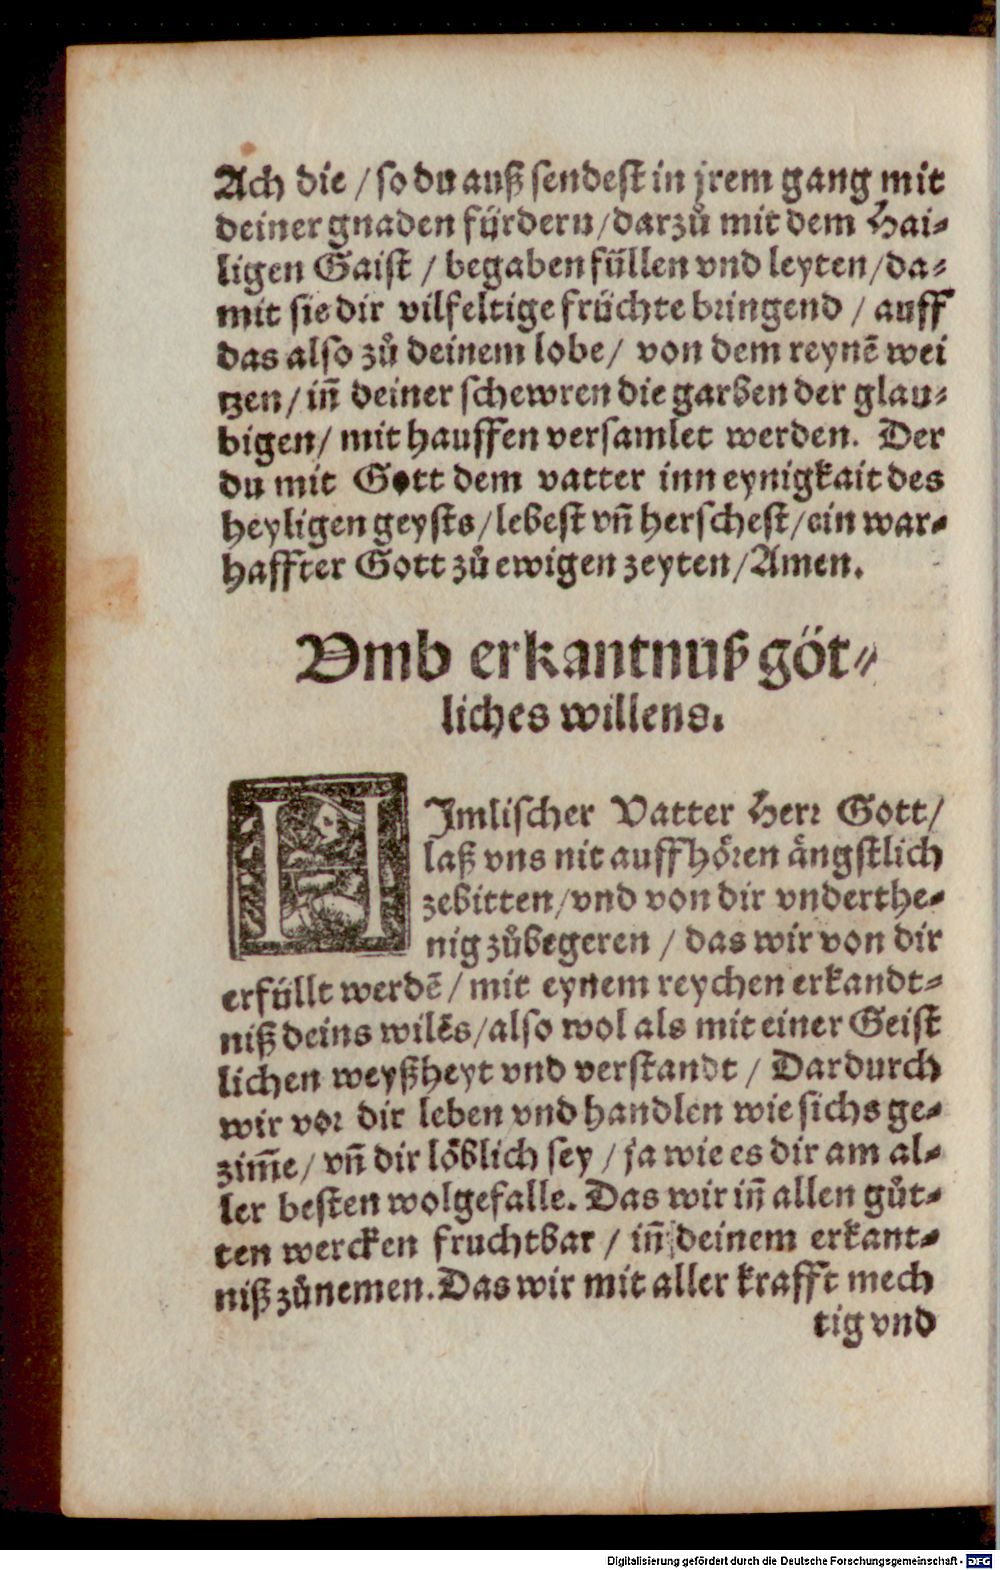 Ach die / so du auß sendest in jrem gang mit
deiner gnaden fürdern / darzů mit dem Hai-
ligen Gaist / begaben füllen vnd leyten / da-
mit sie dir vilfeltige früchte bringend / auff
das also zů deinem lobe / von dem reynē wei
tzen / iñ deiner schewren die garben der glau-
bigen / mit hauffen versamlet werden. Der
du mit Gott dem vatter inn eynigkait des
heyligen geysts / lebest vñ herschest / ein war-
haffter Gott zů ewigen zeyten / Amen.
Vmb erkantnuß göt-
liches willens.
HImlischer Vatter Herr Gott /
laß vns nit auffhören ängstlich
zebitten / vnd von dir vnderthe-
nig zůbegeren / das wir von dir
erfüllt werdē / mit eynem reychen erkandt-
niß deins wilēs / also wol als mit einer Geist
lichen weyßheyt vnd verstandt / Dardurch
wir vor dir leben vnd handlen wie sichs ge-
zim̄e / vñ dir löblich sey / ja wie es dir am al-
ler besten wolgefalle. Das wir iñ allen gůt-
ten wercken fruchtbar / iñ deinem erkant-
niß zůnemen. Das wir mit aller krafft mech
tig vnd
Digitalisierung gefördert durch die Deutsche Forschungsgemeinschaft - DFG